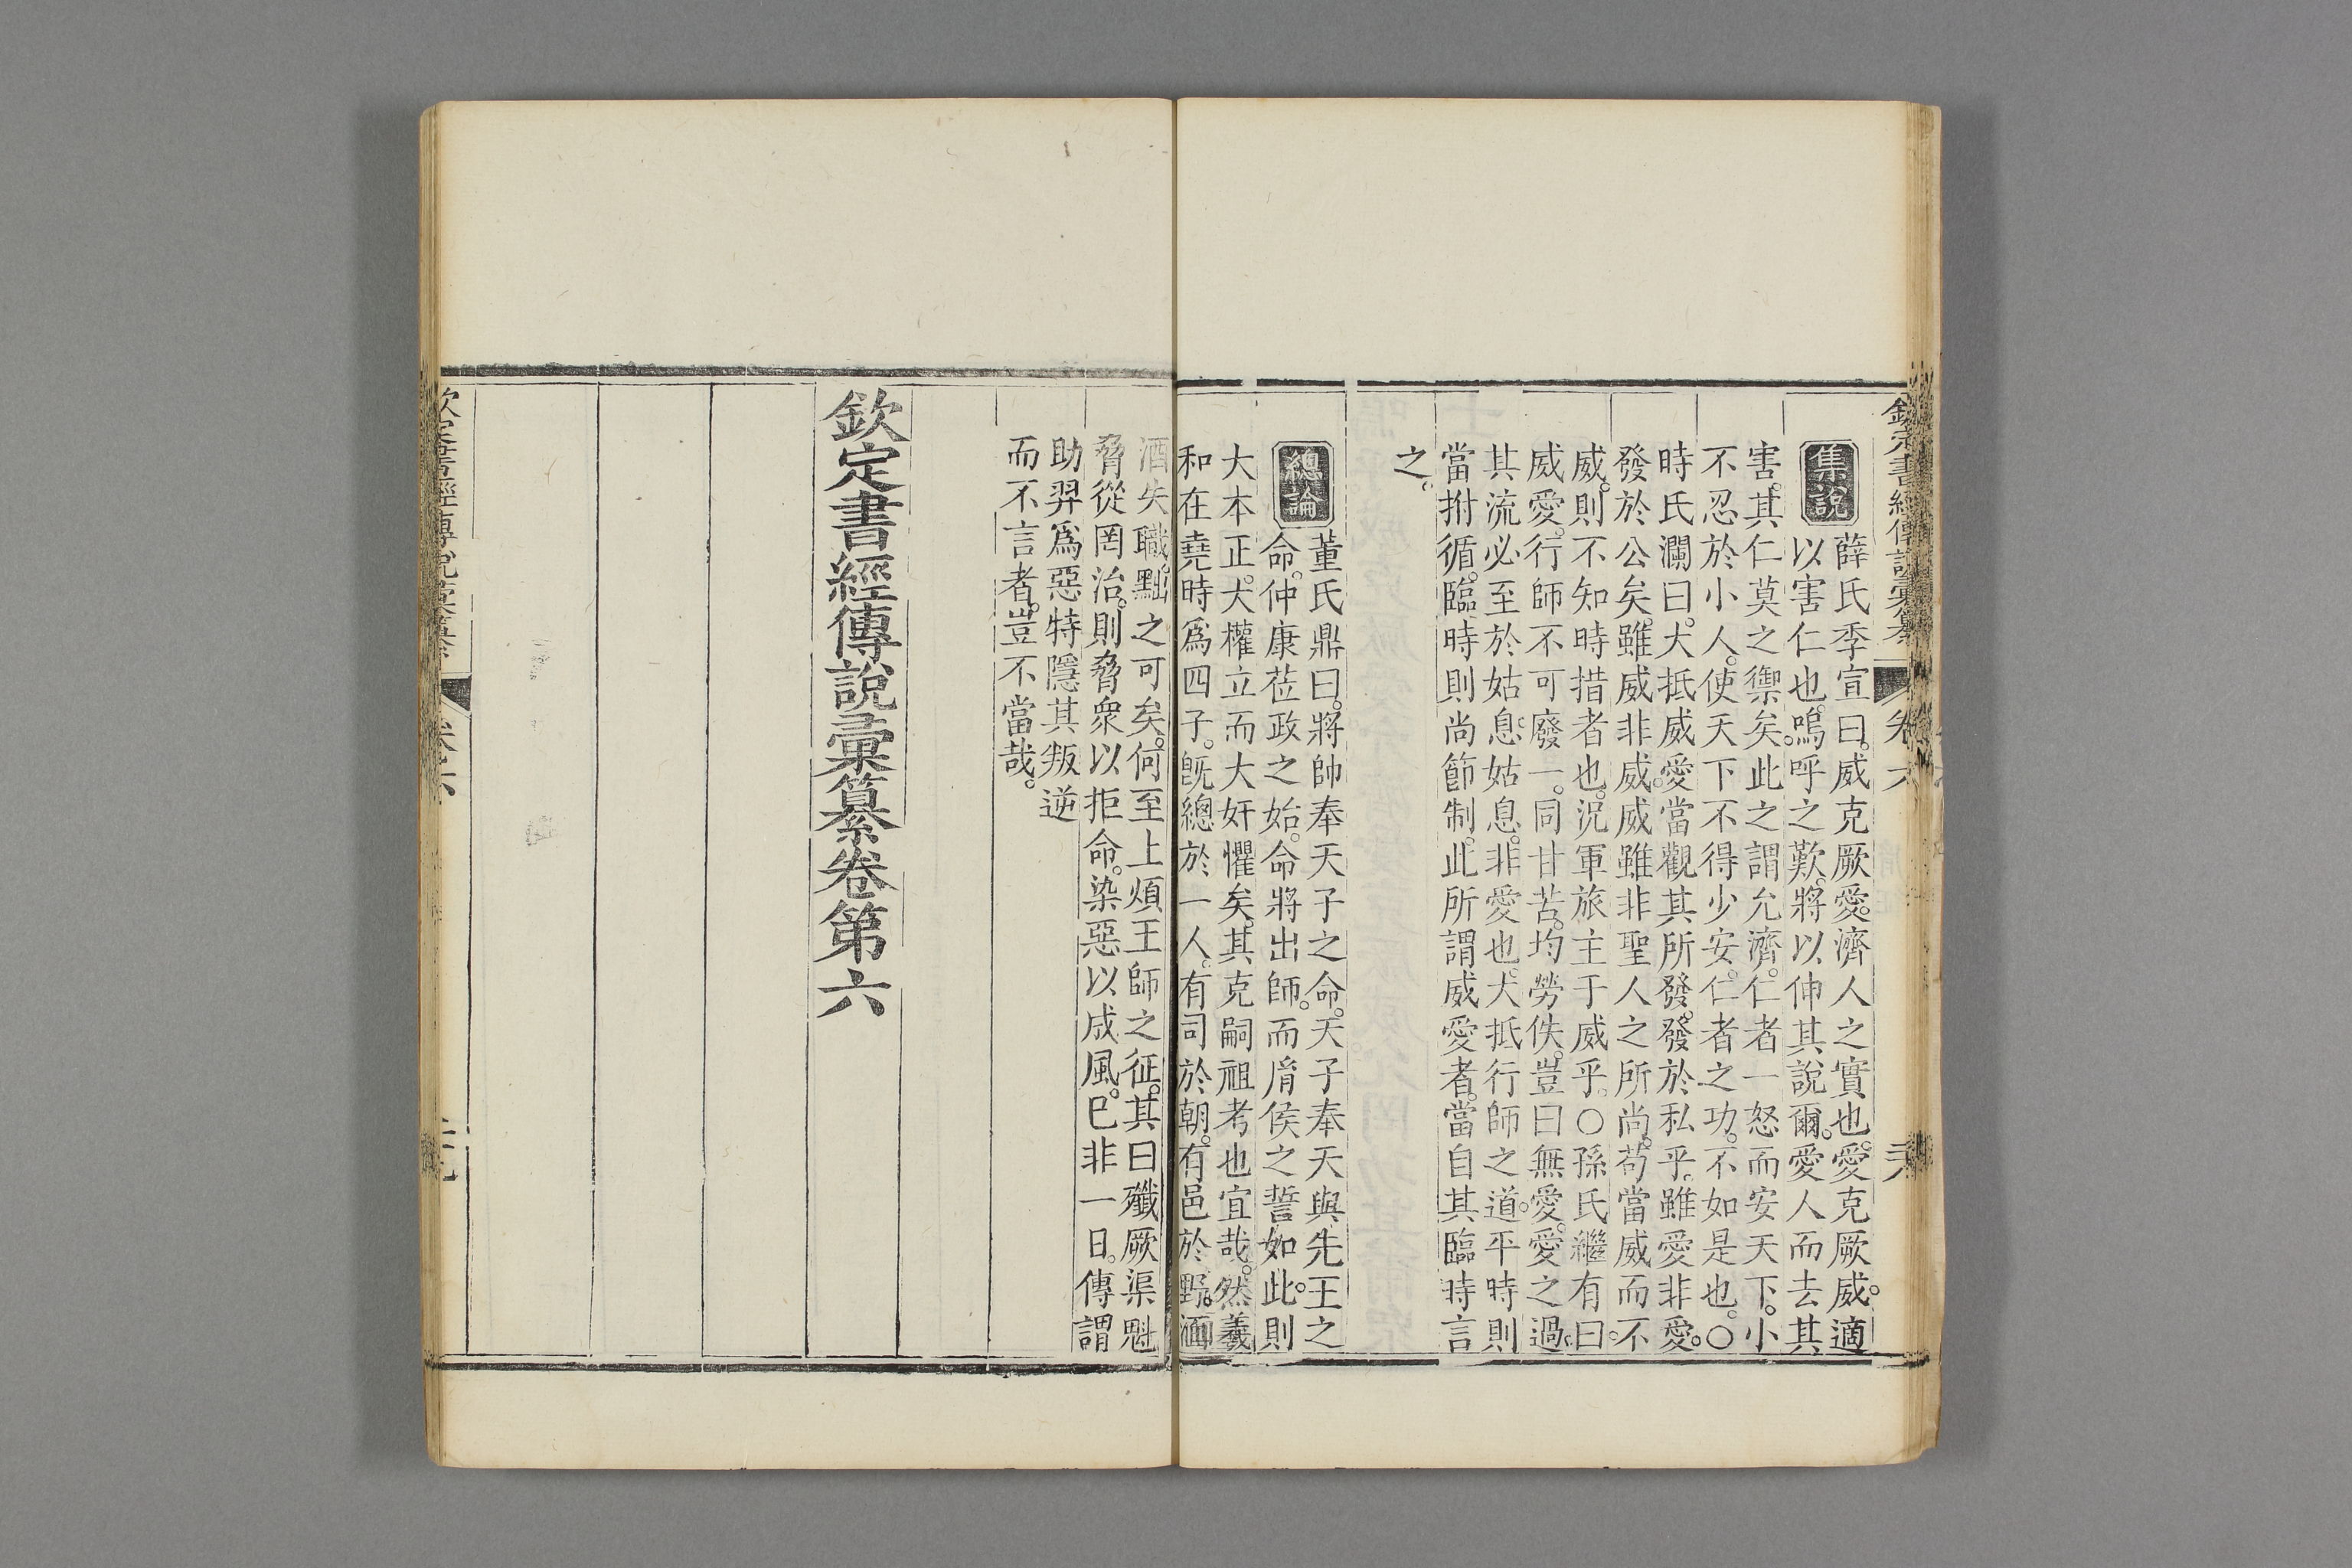 欽定書經傳說彙纂 卷六
集說
薛氏季宣曰。威克厥愛。濟人之實也。愛克厥威。適
以害仁也。嗚呼之歎。將以伸其說爾。愛人而去其
害。其仁莫之禦矣。此之謂允濟。仁者一怒而安天下。小
不忍於小人。使天下不得少安。仁者之功。不如是也。○
時氏瀾曰。大抵威愛當觀其所發。發於私乎。雖愛非愛。
發於公矣。雖威非威。威雖非聖人之所尚。苟當威而不
威。則不知時措者也。況軍旅主于威乎。○孫氏繼有曰。
威愛。行師不可廢一。同甘苦。均勞佚。豈曰無愛。愛之過。
其流必至於姑息。姑息。非愛也。大抵行師之道。平時則
當拊循。臨時則尚節制。此所謂威愛者。當自其臨時言
之。
總論
董氏鼎曰。將帥奉天子之命。天子奉天與先王之
命。仲康莅政之始。命將出師。而胤侯之誓如此。則
大本正。大權立而大奸懼矣。其克嗣祖考也宜哉。然羲
和在堯時爲四子。旣總於一人。有司於朝。有邑於野。湎
酒失職。黜之可矣。何至上煩王師之征。其曰殲厥渠魁
脅從罔治。則脅衆以拒命。染惡以成風。巳非一日。傳謂
助羿爲惡特隱其叛逆
而不言者。豈不當哉。
欽定書經傳說彙纂卷第六